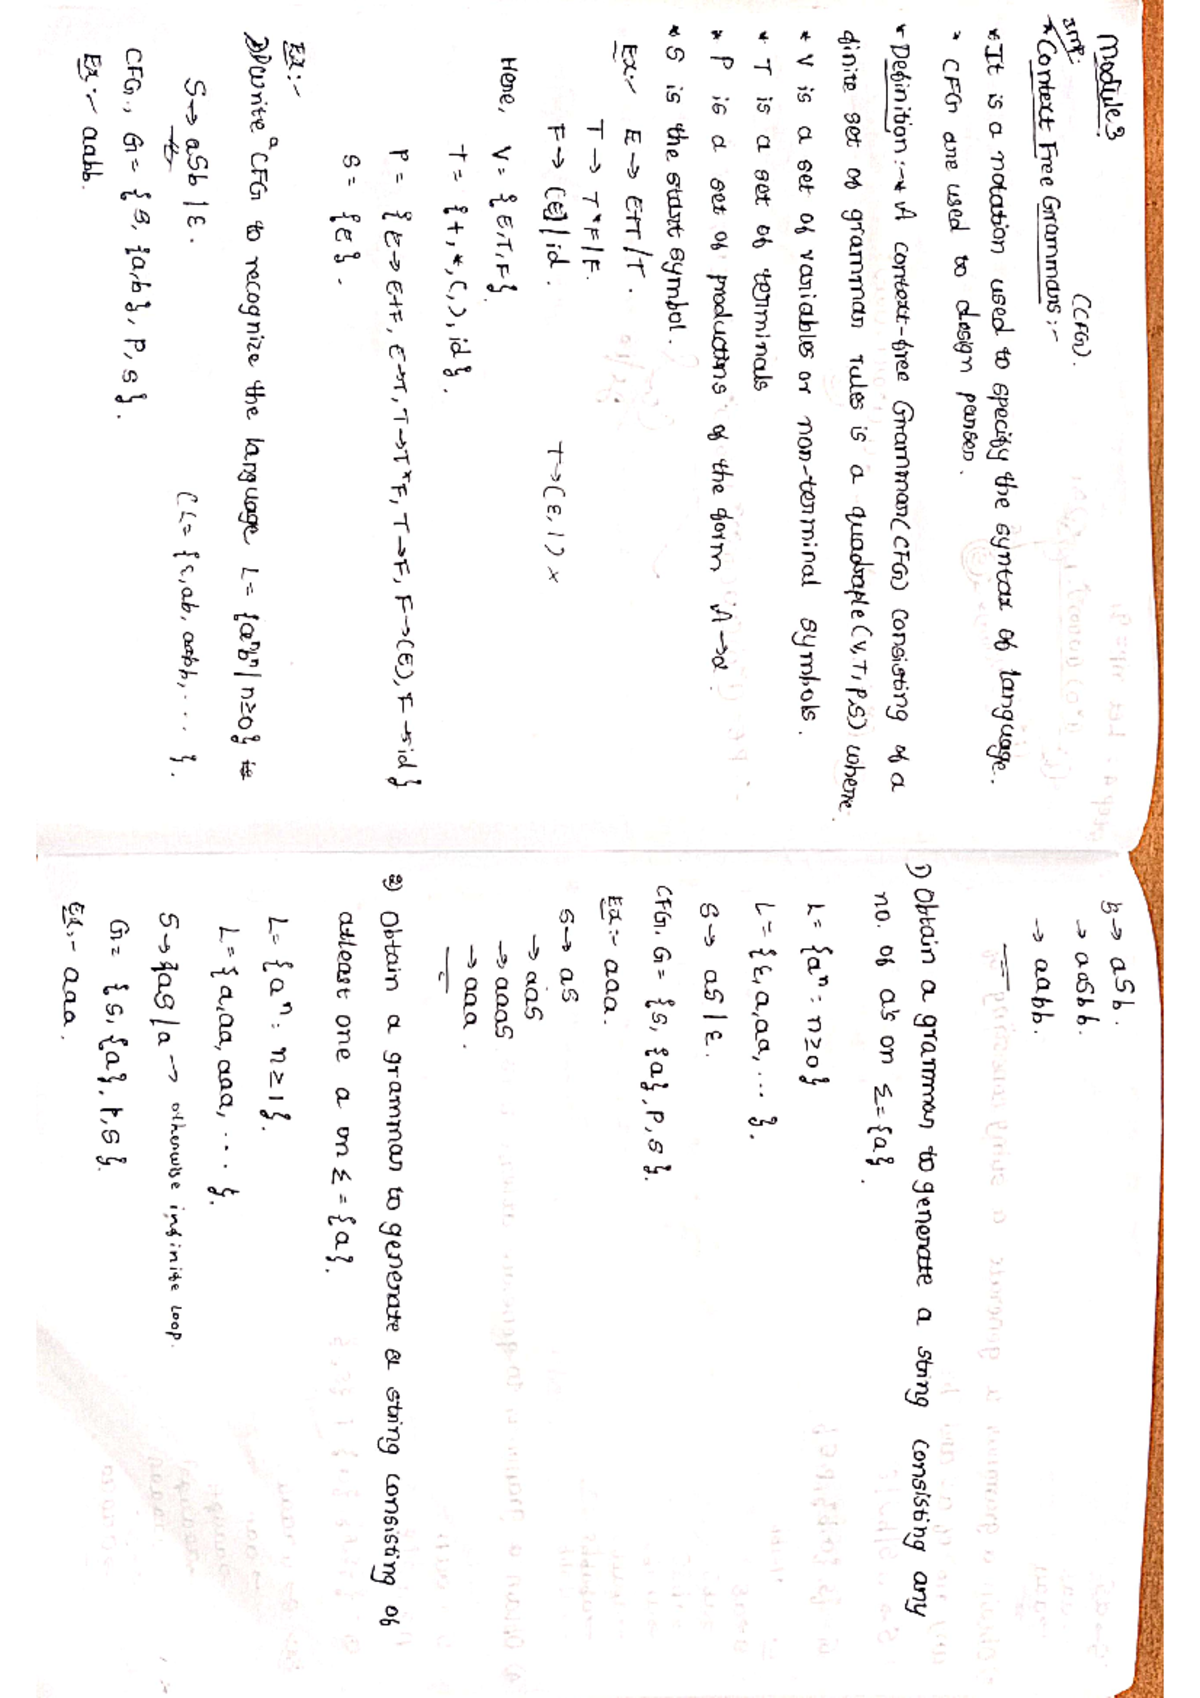 Module 3
Imp:
(CFG).
* Context Free Grammars :-
* It is a notation used to specify the syntax of language.
* CFG are used to design parser.
* Definition :- * A context-free Grammar(CFG) consisting of a
finite set of grammar rules is a quadraple (V,T,P,S) where
* V is a set of variables or non-terminal symbols.
* T is a set of terminals
* P is a set of productions of the form A→α.
* S is the start symbol.
Ex:- E→ E+T/T.
T→ T*F/F.
F→ (E)/id. T→(E,1) x
Here, V= {E,T,F}.
T= {+,*,(,),id}.
P= {E→E+F, E→T, T→T*F, T→F, F→(E), F→id}
S= {E}.
Ex:-
1) write a CFG to recognize the language L= {aⁿbⁿ/n≥0} is
S→ aSb | ε. (L= {ε,ab,aabb,... }.
CFG, G= {S, {a,b}, P, S}.
Ex:- aabb.
S→ aSb.
→ aaSbb.
→ aabb.
1) Obtain a grammar to generate a string consisting any
no. of a's on Σ={a}.
L= {aⁿ: n≥0}
L= {ε,a,aa,... }.
S→ aS | ε.
CFG, G= {S, {a}, P, S}.
Ex:- aaa.
S→ aS
→ aaS
→ aaaS
→ aaa.
2) Obtain a grammar to generate a string consisting of
atleast one a on Σ={a}.
L= {aⁿ: n≥1}.
L= {a,aa,aaa,... }.
S→ aS/a → otherwise infinite loop.
G= {S, {a}, P, S}.
Ex:- aaa.